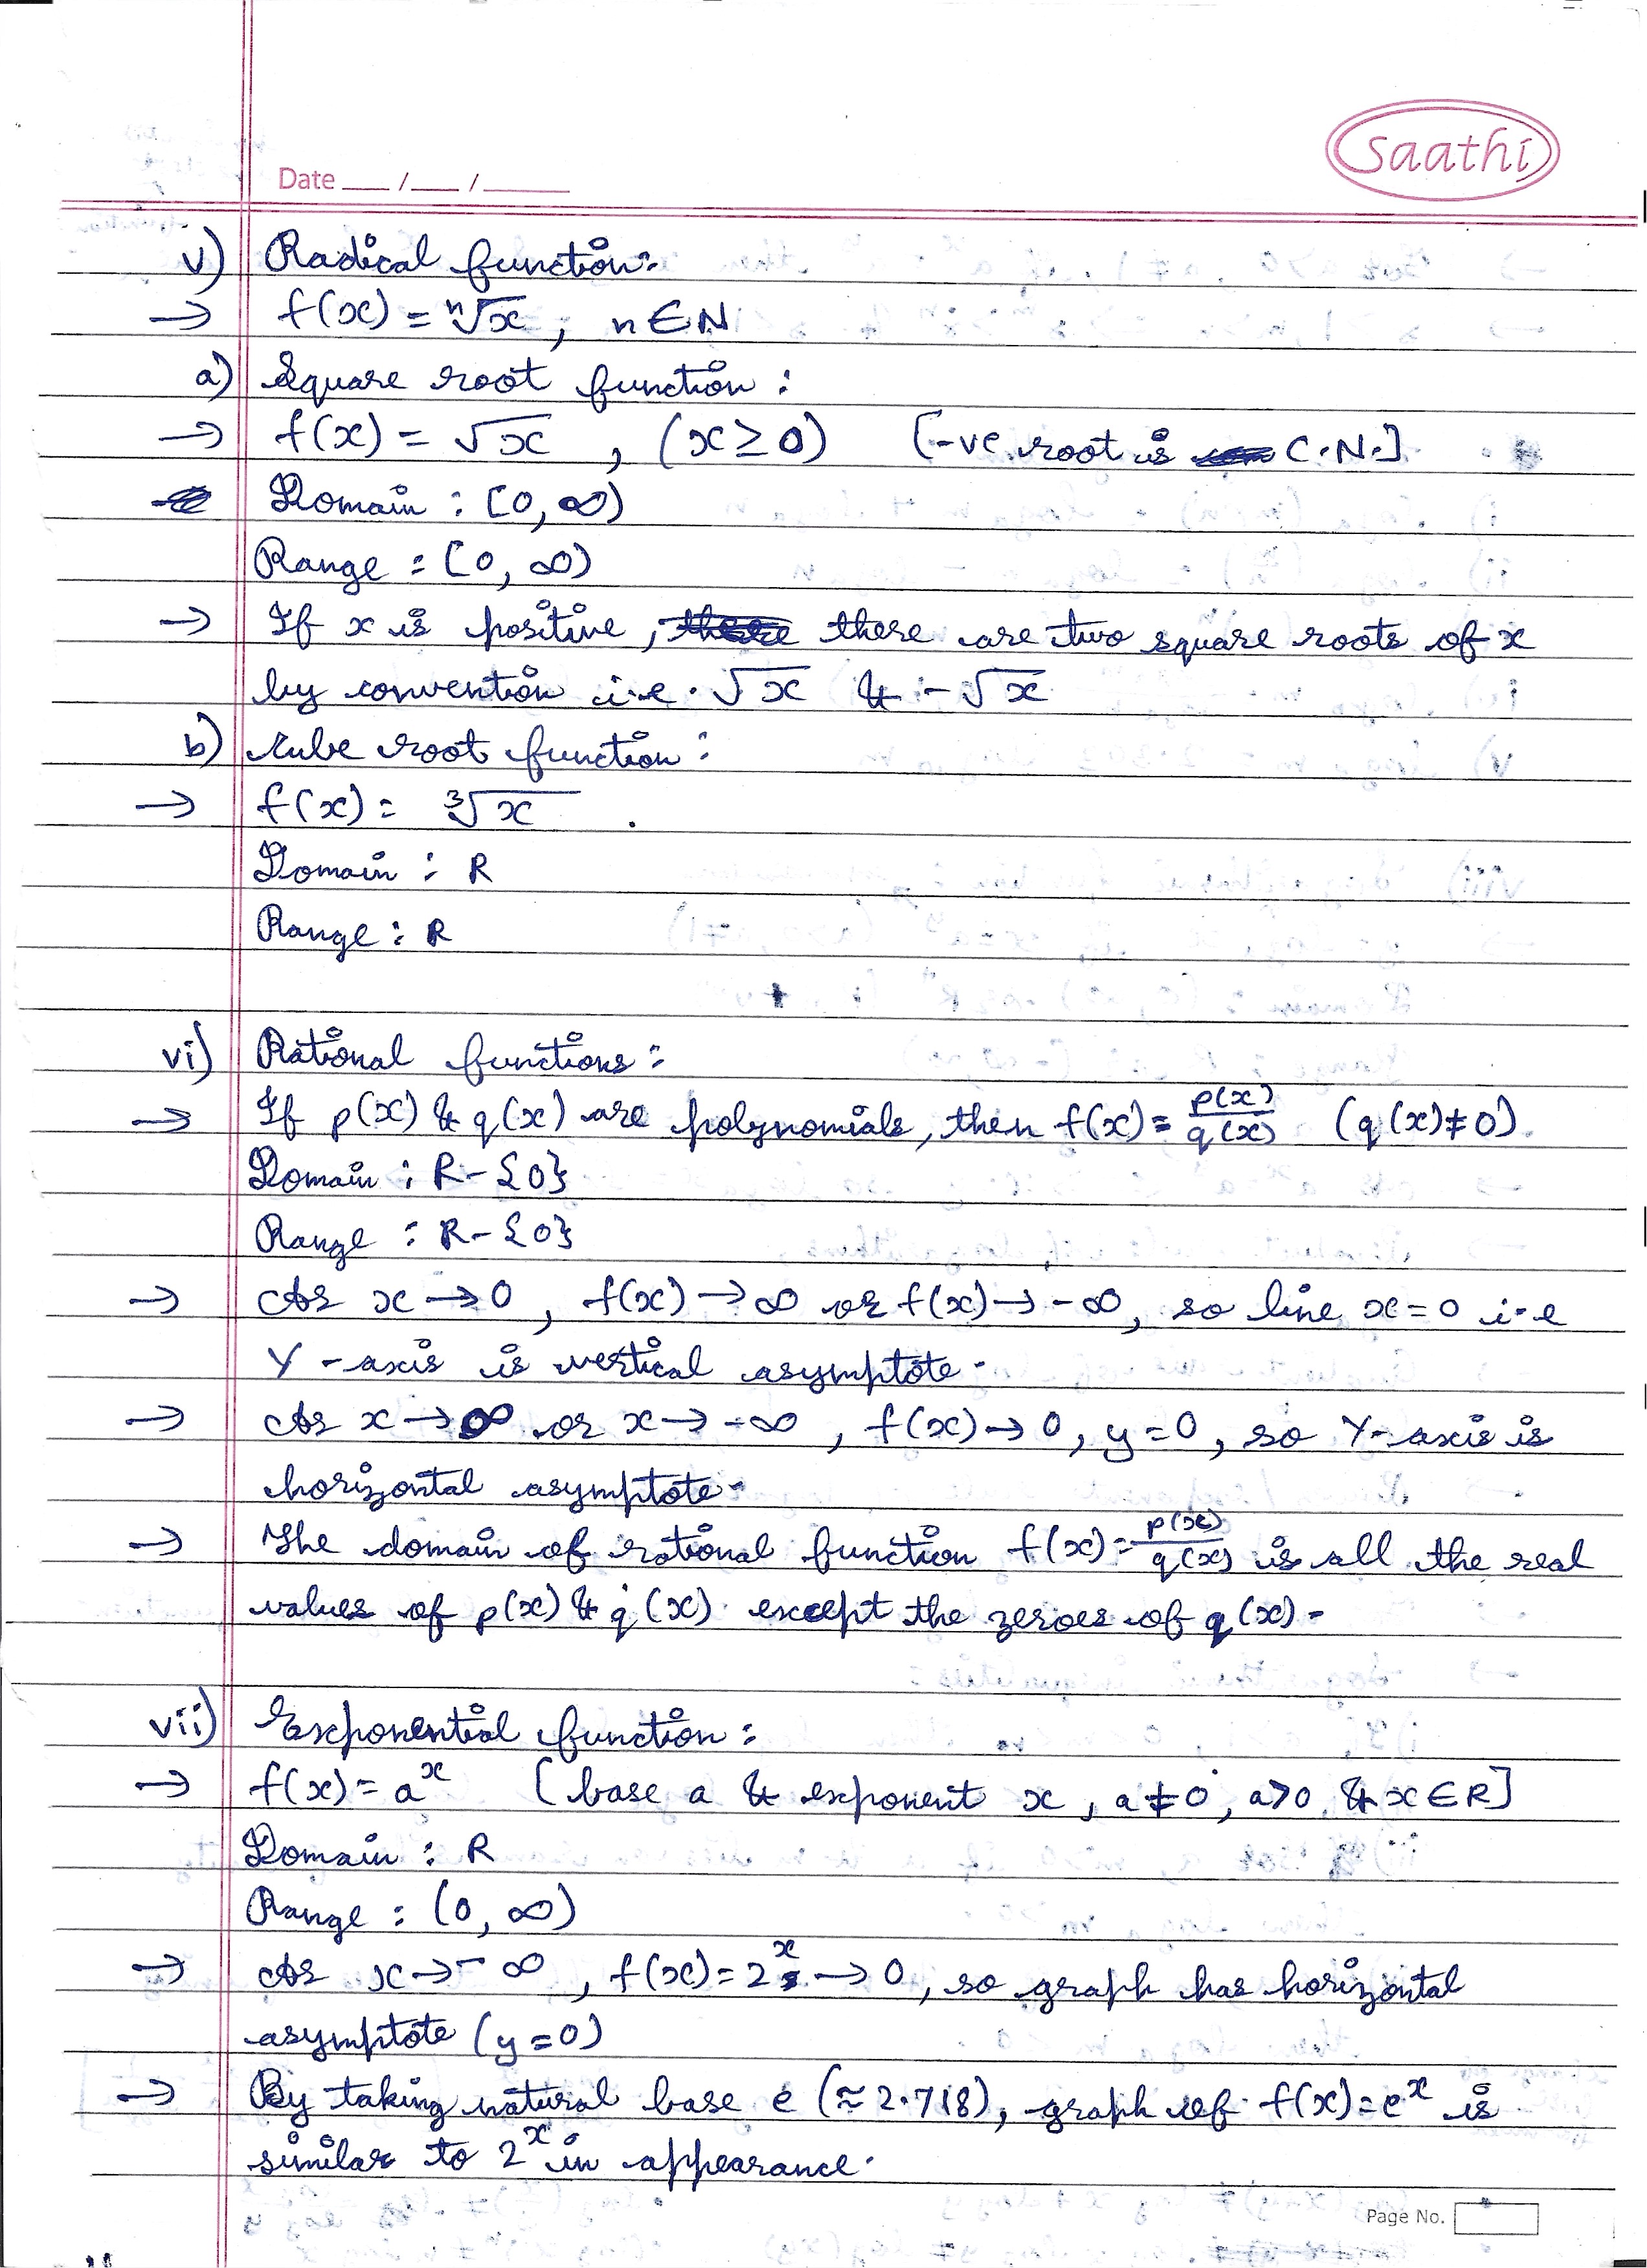 Saathi
Date ___ /___ /_____
v) Radical function:
→ f(x) = ⁿ√x , n ∈ N
a) Square root function :
→ f(x) = √x , (x ≥ 0) [-ve root is C.N.]
Domain : [0, ∞)
Range : [0, ∞)
→ If x is positive, there are two square roots of x
by convention i.e. √x & -√x
b) Cube root function :
→ f(x) = ³√x .
Domain : R
Range : R
vi) Rational functions :
→ If p(x) & q(x) are polynomials, then f(x) = p(x)/q(x) (q(x) ≠ 0).
Domain : R - {0}
Range : R - {0}
→ As x → 0 , f(x) → ∞ or f(x) → -∞, so line x = 0 i.e
Y-axis is vertical asymptote.
→ As x → ∞ or x → -∞ , f(x) → 0, y = 0, so Y-axis is
horizontal asymptote.
→ The domain of rational function f(x) = p(x)/q(x) is all the real
values of p(x) & q(x) except the zeroes of q(x).
vii) Exponential function :
→ f(x) = aˣ [base a & exponent x, a ≠ 0, a > 0 & x ∈ R]
Domain : R
Range : (0, ∞)
→ As x → -∞ , f(x) = 2ˣ → 0, so graph has horizontal
asymptote (y = 0)
→ By taking natural base e (≈ 2.718), graph of f(x) = eˣ is
similar to 2ˣ in appearance.
Page No.